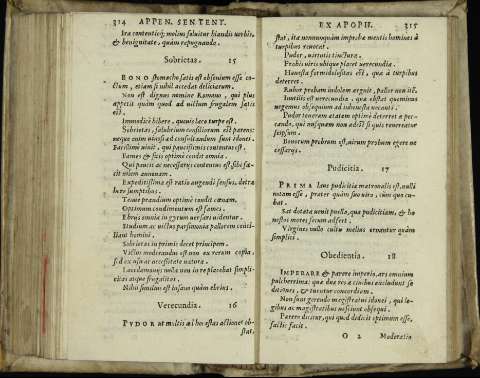 314 APPEN. SENTENT.
Ita contentio; melius soluitur blandis verbis,
& benignitate, quàm repugnando.
Sobrietas. 15
BONO stomacho satis est obsonium esse co-
ctum, etiam si nihil accedat deliciarum.
Non est dignus nomine humano, qui plus
appetit quàm quod ad victum frugalem satis
est.
Immodicè bibere, quouis loco turpe est.
Sobrietas, salubrium consiliorum est parens:
Facillimè uiuit, qui paucissimis contentus est.
Fames & sitis optimè condit omnia.
Qui paucis ac necessariis contentus est, sibi fa-
cit
Expeditissima est ratio augendi census, detra
here sumptibus.
Tenue prandium optimè condit cœnam.
Optimum condimentum est fames.
Ebriis omnia in gyrum uersari uidentur.
Studium ac uictus parsimonia pallorem conci-
liant homini.
Sobrietas in primis decet principem.
Victus moderandus est non ex rerum copia,
sed ex usu ac necessitate natura.
simpli-
citas atque frugalitas.
Nihil similius est insano quàm ebrius.
Verecundia. 16
PVDOR ut multis ad honestas actiones ob-
stat,
EX APOPH. 315
stat, ita nonnunquàm improba mentis homines à
turpibus reuocat.
Pudor, uirtutis tinctura.
Probis uiris ubique placet verecundia.
Honesta formidolositas est, qua à turpibus
deterret.
Rubor probam indolem arguit, pallor non itē.
Inutilis est verecundia, qua obstat quominus
urgemus obsequium ad inhonesta uocanti.
Pudor teneram ætatem optimè deterret à pec-
cando, qui nusquam non adest si quis reuereatur
seipsum.
Bonorum probrum est, uirum probum egere ne
cessariis.
Pudicitia. 17
PRIMA laus pudicitia matronalis est, nulli
notam esse, præter quàm suo uiro, cum quo cu-
bat.
Sat dotata uenit puella, quæ pudicitiam, & ho
nestos mores secum adfert.
Virgines nullo cultu melius ornantur quàm
simplici.
Obedientia. 18
IMPERARE & parere imperio, ars omnium
pulcherrima: quæ duæ res à ciuibus excludunt se
ditiones, & tuentur concordiam.
Non sunt gerendo magistratui idonei, qui le-
gibus ac magistratibus nesciunt obsequi.
Parere dicitur, qui quod didicit optimum esse,
facit.
O 2 Moderatio